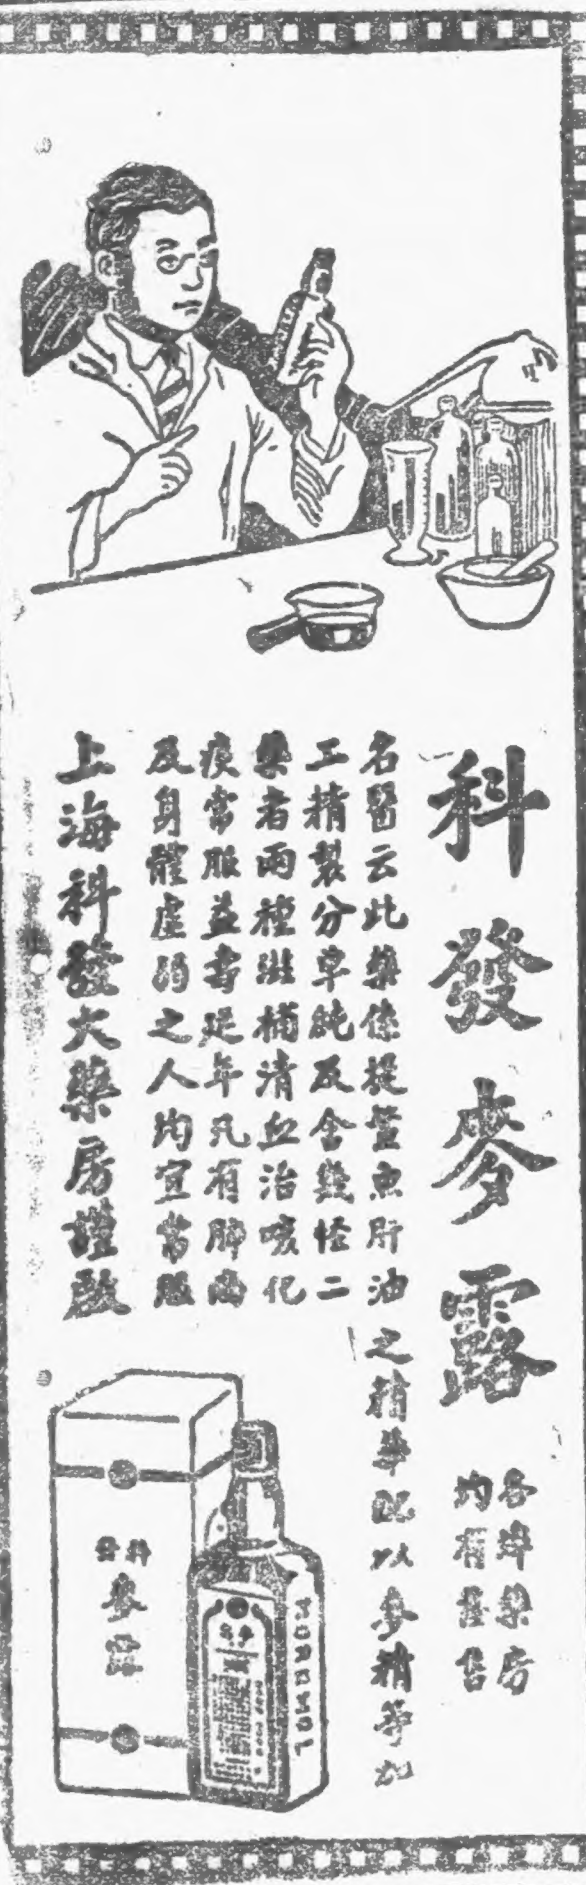 科發麥露
各埠藥房
均有發售
名醫云此藥係提鱉魚肝油之精華配以麥精等加
工精製分單純及含幾怪二
藥者兩種滋補清血治咳化
痰常服益壽延年凡有肺病
及身體虛弱之人均宜常服
上海科發大藥房謹啟
科發
麥露
MORUMOL